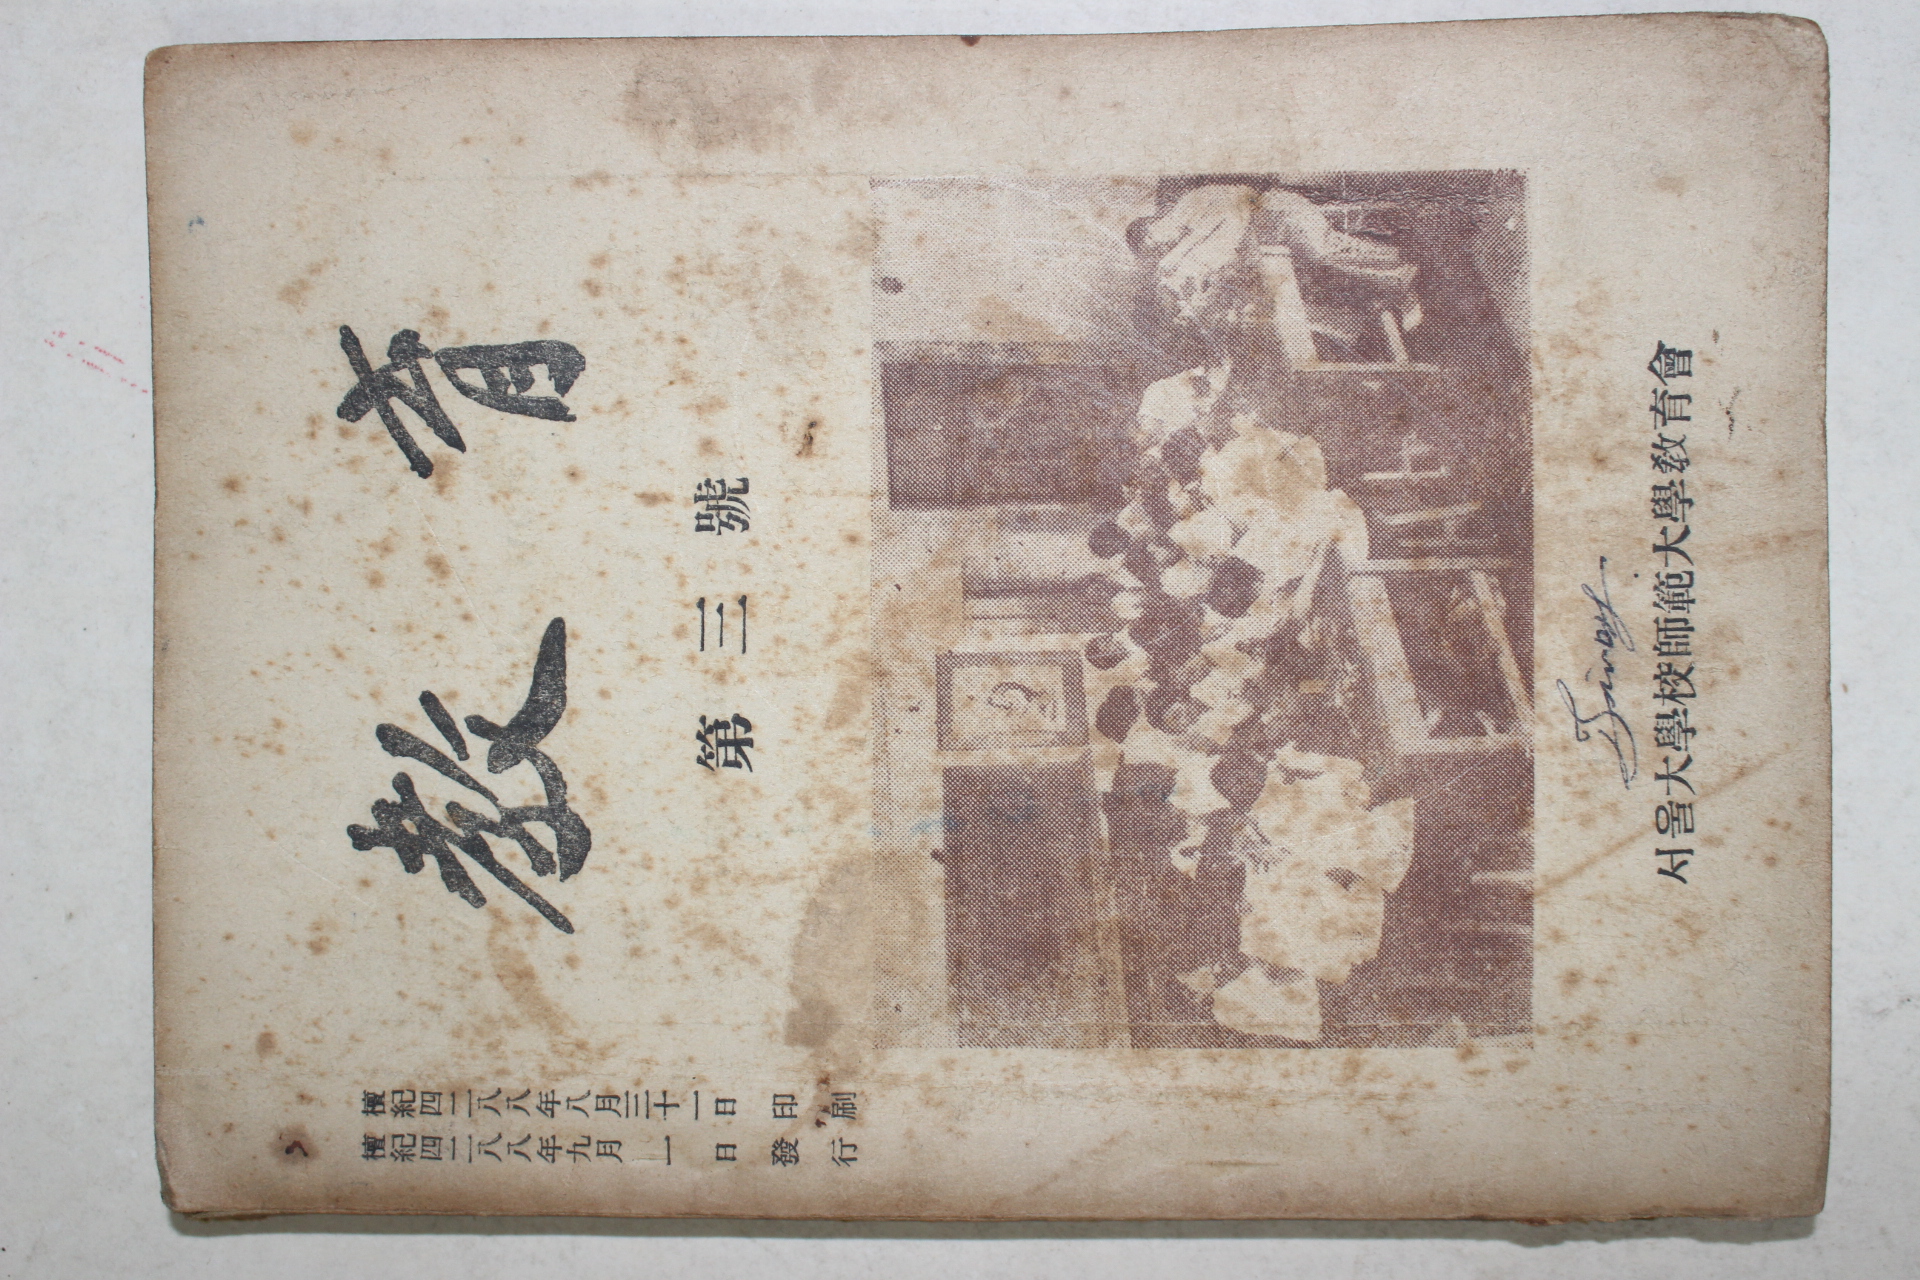 檀紀四二八八年八月三十一日 印刷
檀紀四二八八年九月一日 發行
教育
第三號
서울大學校師範大學敎育會